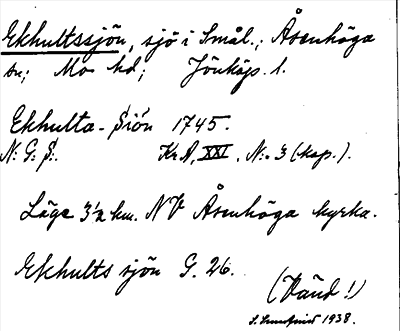 Ekhultssjön, sjö i Smål.; Åsenhöga
sn; Mo hd; Jönköp. l.
Ekhulta-Siön 1745.
N: G: S:. Kr A, XXI. N:o 3 (kop.).
Läge 3½ km. NV Åsenhöga kyrka.
Ekhults sjön G. 26.
(Vänd!)
1938.